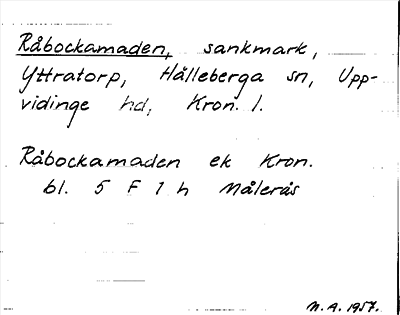 Råbockamaden, sankmark,
Yttratorp, Hälleberga sn, Upp-
vidinge hd, Kron. l.
Råbockamaden ek Kron.
bl. 5 F 1 h Målerås
N. A. 1957.